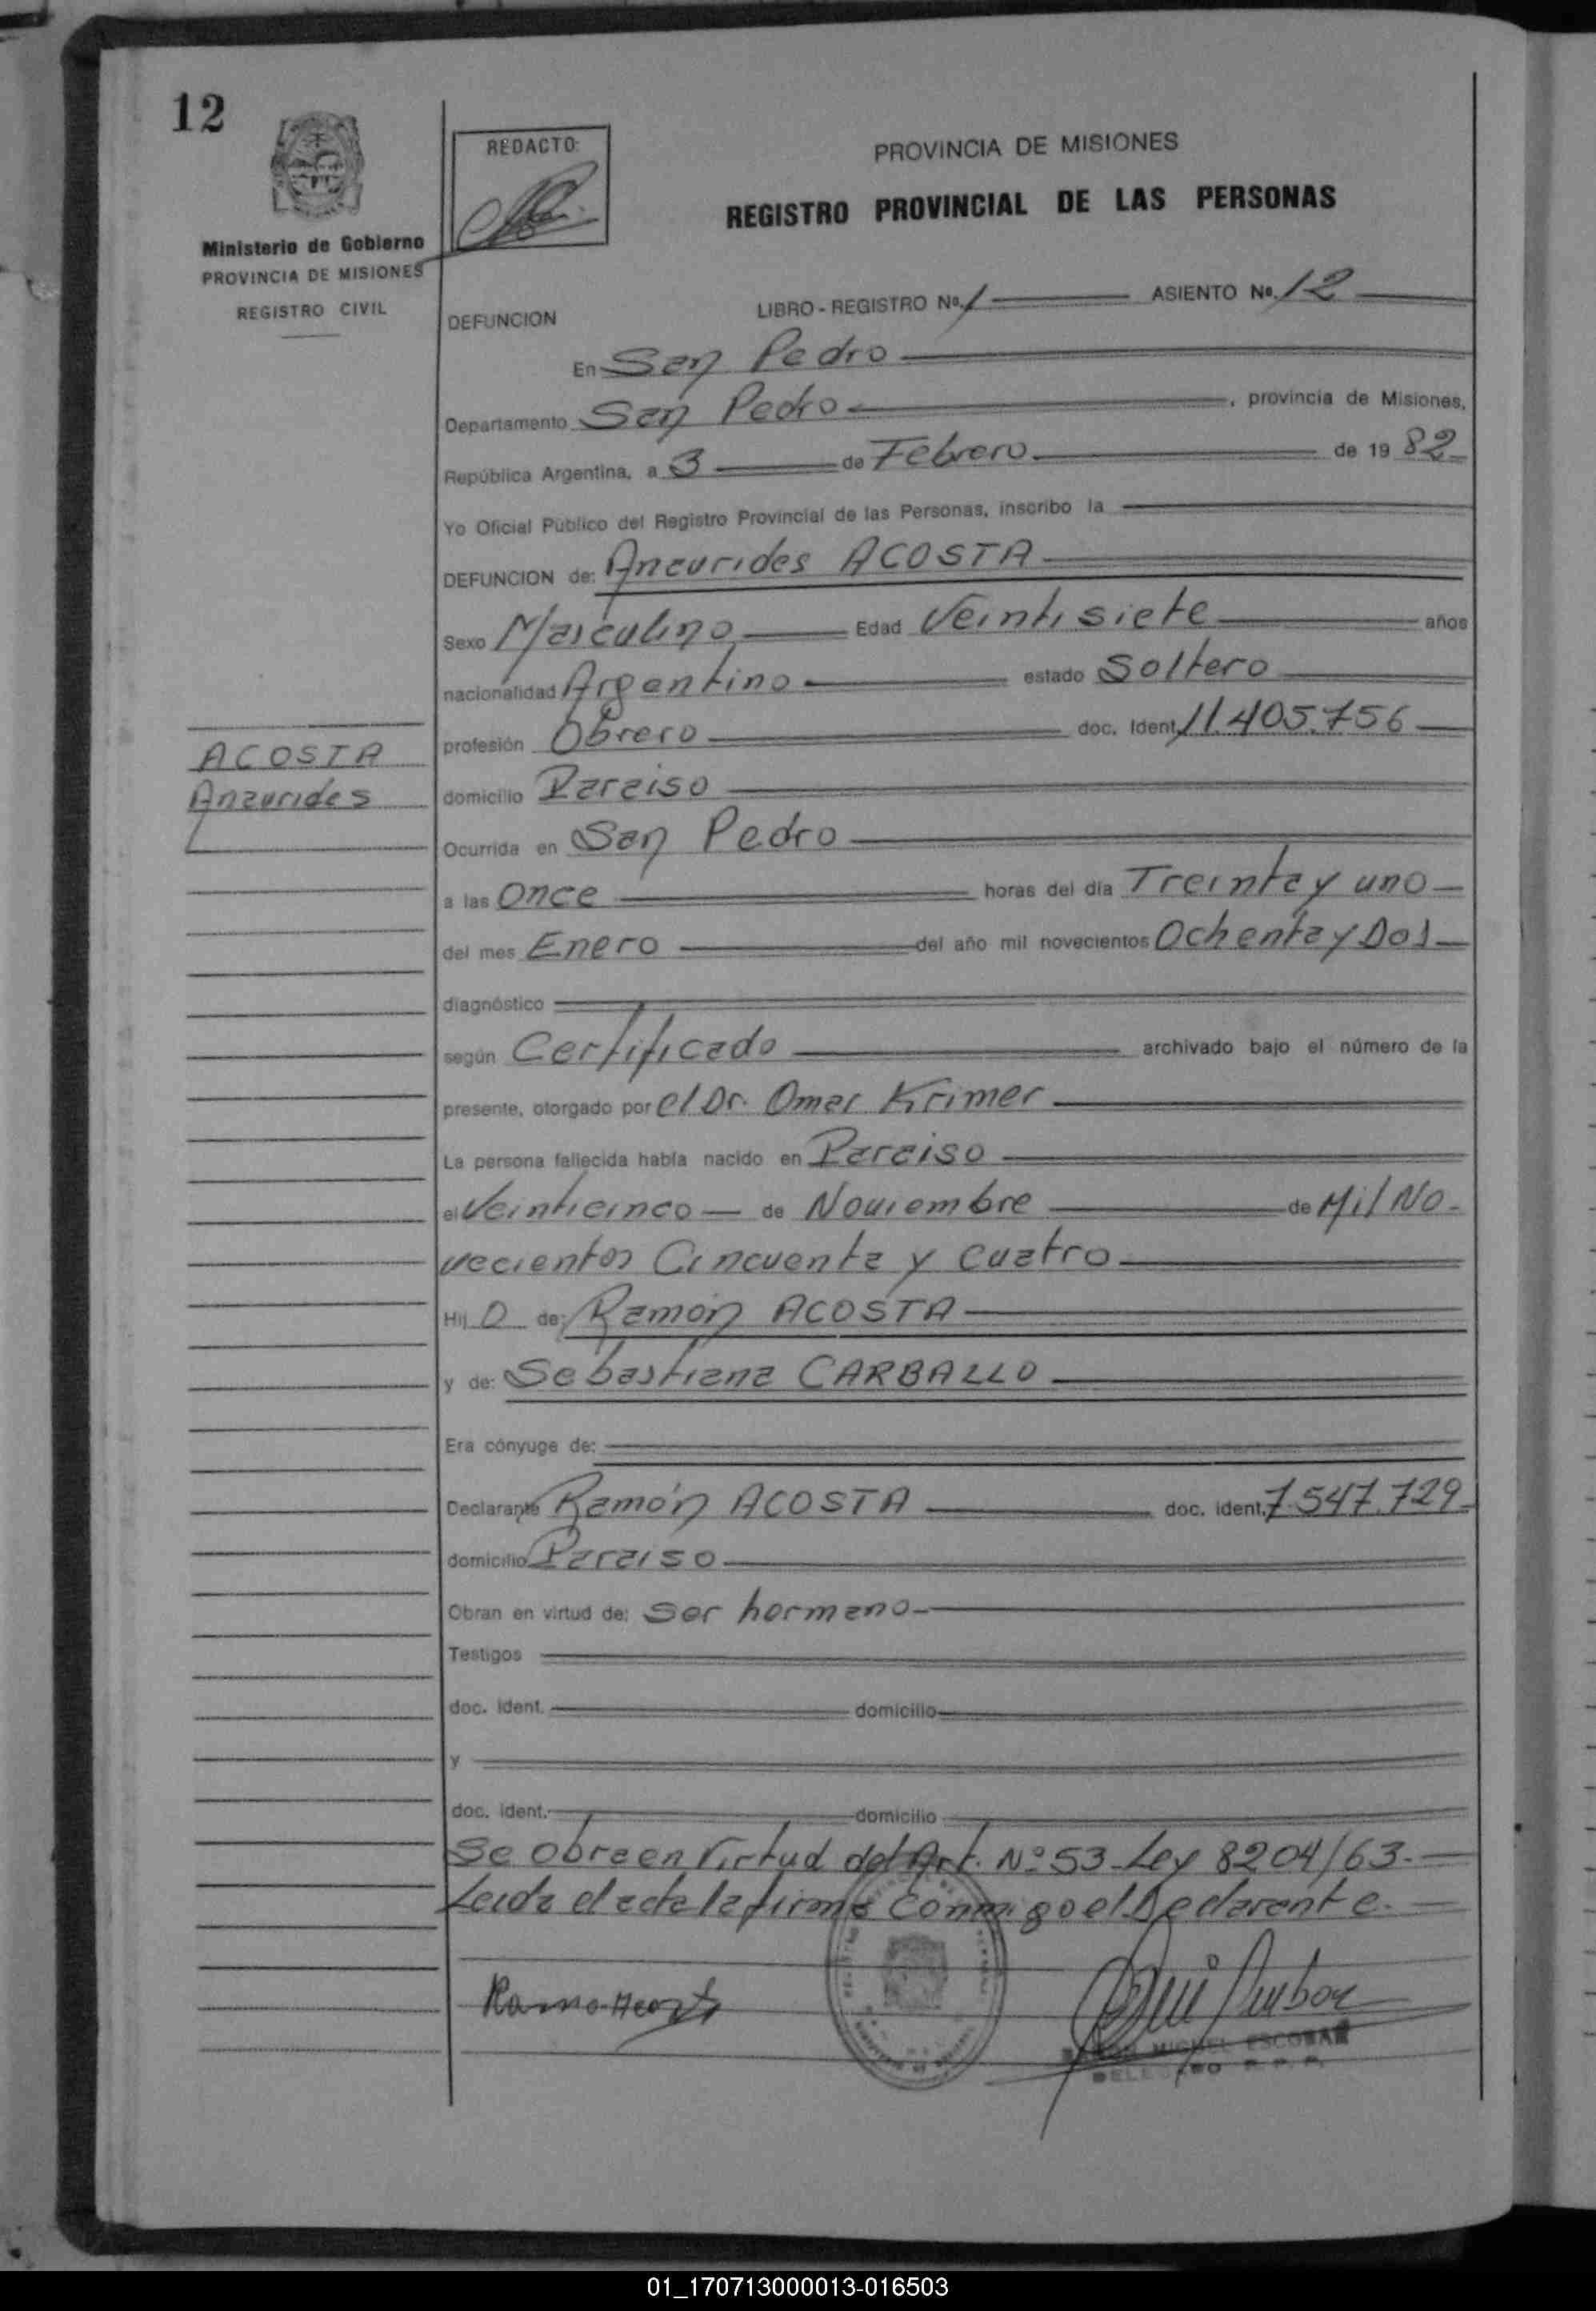 12
REDACTO:
PROVINCIA DE MISIONES
REGISTRO PROVINCIAL DE LAS PERSONAS
Ministerio de Gobierno
PROVINCIA DE MISIONES
REGISTRO CIVIL
DEFUNCION LIBRO - REGISTRO No. 1 ASIENTO No. 12
En San Pedro
Departamento San Pedro , provincia de Misiones,
República Argentina, a 3 de Febrero de 19 82
Yo Oficial Público del Registro Provincial de las Personas, inscribo la
DEFUNCION de: Anaurides ACOSTA
Sexo Masculino Edad Veintisiete años
nacionalidad Argentino estado Soltero
profesión Obrero doc. Ident. 11.405.756
ACOSTA
Anaurides
domicilio Paraiso
Ocurrida en San Pedro
a las Once horas del día Treinta y uno
del mes Enero del año mil novecientos Ochenta y Dos
diagnóstico
según Certificado archivado bajo el número de la
presente, otorgado por el Dr. Omar Krimer
La persona fallecida había nacido en Paraiso
el Veinticinco de Noviembre de Mil No-
vecientos Cincuenta y Cuatro
Hij o de: Ramón ACOSTA
y de: Sebastiana CARBALLO
Era cónyuge de:
Declarante Ramón ACOSTA doc. ident. 7.547.729
domicilio Paraiso
Obran en virtud de: Ser hermano
Testigos
doc. ident. domicilio
y
doc. ident. domicilio
Se obra en Virtud del Art. Nº 53 - Ley 8204/63.-
Leida el acta la firma Conmigo el Declarante.
Ramon Acosta
MIGUEL ESCOBAR
DELEGADO R. P. P.
01_170713000013-016503